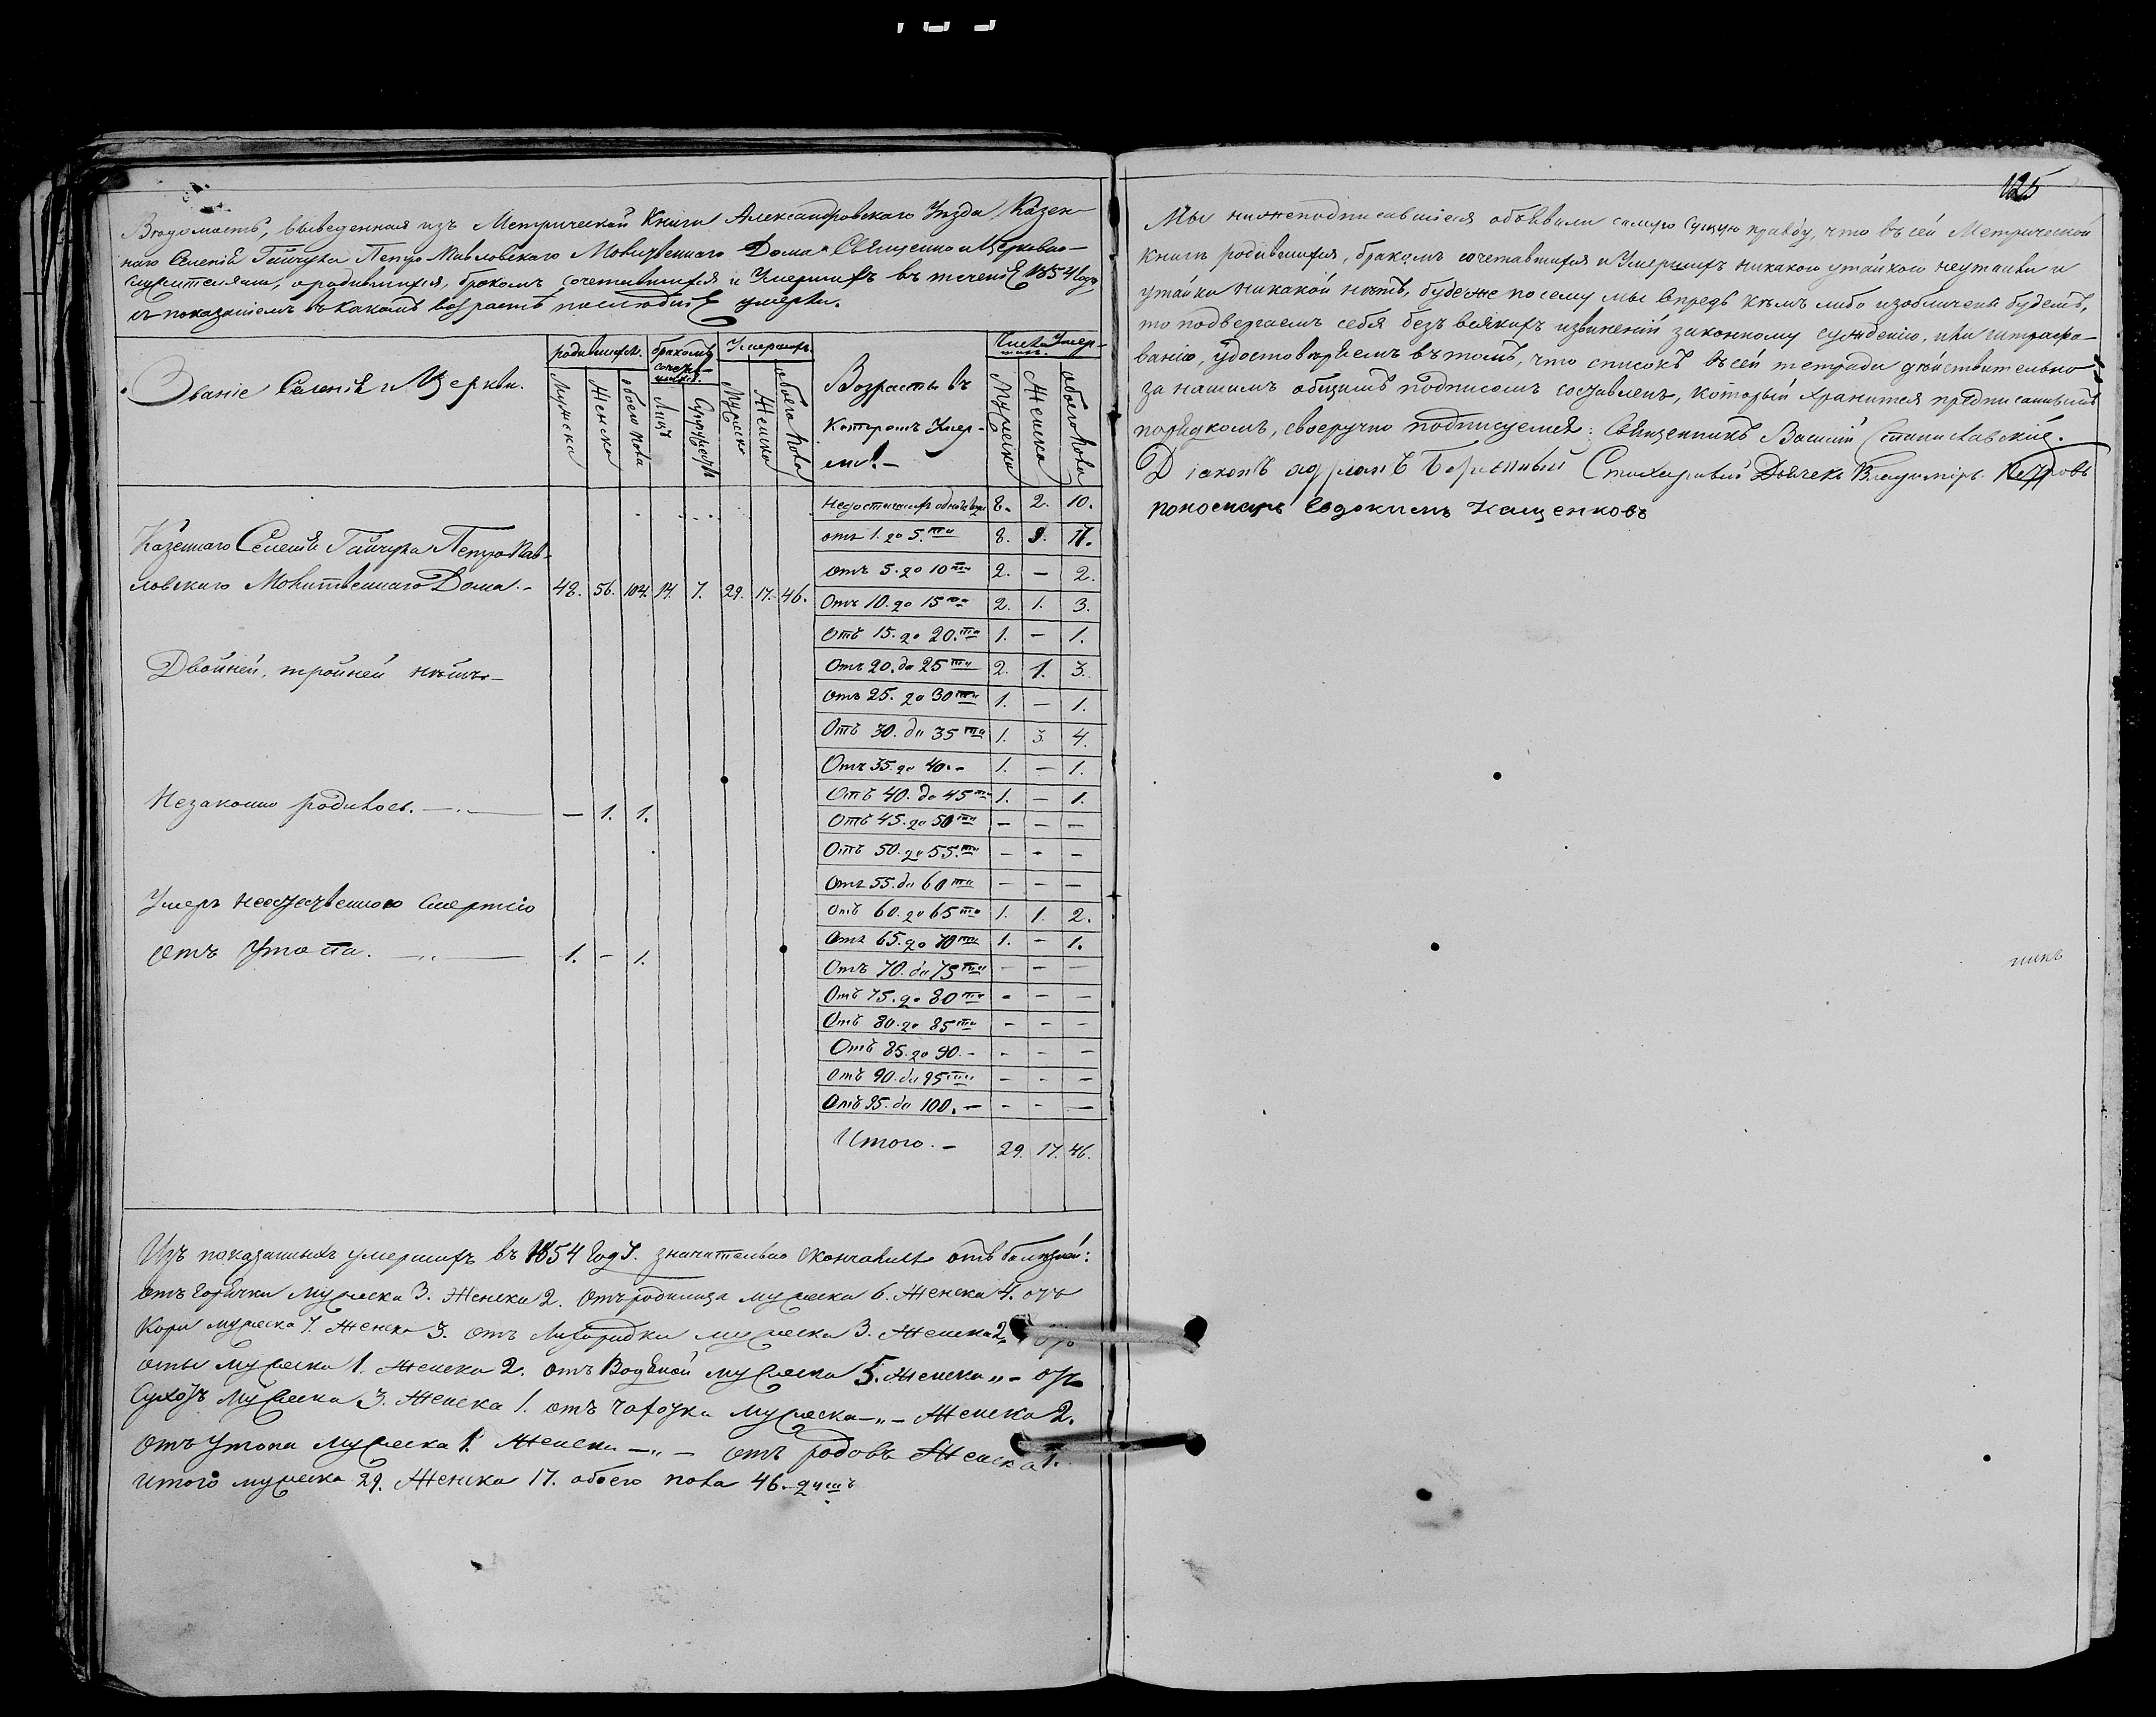 Вѣдомость, выведенная изъ Метрической Книги Александровскаго Уѣзда, Казен-
наго Селенія Гайчула Петро Павловскаго Молитвеннаго Дома Священно и Церковно-
служителями, о родившихся, бракомъ сочетавшихся и Умершихъ въ теченіе 1854 Года,
съ показаніемъ въ какомъ возрастѣ умерли.
Званіе Селенія и Церкви.
родившихся.
Мужска
Женска
обоего пола
бракомъ сочетав-
шихся.
Лицъ
Супружествъ
Умершихъ
Мужска
Женска
обоего пола
Возрасты въ
Которомъ Умер-
ли. –
Число Умер-
шихъ.
Мужска
Женска
обоего пола
Казеннаго Селенія Гайчула Петро Пав-
ловскаго Молитвеннаго Дома. – 48. 56. 104. 14. 7. 29. 17. 46.
Двойней, тройней нѣтъ –
Незаконно родилось. – — 1. 1.
Умеръ неестественною Смертію
отъ Утопа. – 1. – 1.
Недостигшихъ однаго года 8. 2. 10.
отъ 1. до 5.ти 8. 9. 17.
отъ 5. до 10ти 2. – 2.
Отъ 10. до 15ти 2. 1. 3.
Отъ 15. до 20.ти 1. – 1.
Отъ 20. до 25ти 2. 1. 3.
Отъ 25. до 30ти 1. – 1.
Отъ 30. до 35ти 1. 3. 4.
Отъ 35. до 40. – 1. – 1.
Отъ 40. до 45ти 1. – 1.
Отъ 45. до 50ти – – –
Отъ 50. до 55.ти – – –
Отъ 55. до 60ти – – –
Отъ 60. до 65ти 1. 1. 2.
Отъ 65. до 70ти 1. – 1.
Отъ 70. до 75ти – – –
Отъ 75. до 80ти – – –
Отъ 80. до 85ти – – –
Отъ 85. до 90. – – – –
Отъ 90. до 95ти – – –
Отъ 95. до 100. – – – –
Итого. – 29. 17. 46.
Изъ показанныхъ умершихъ въ 1854 Году значительно скончались отъ болѣзней:
отъ Горячки мужеска 3. Женска 2. Отъ родимца мужеска 6. Женска 4. отъ
Кори мужеска 7. Женска 3. отъ Лихорадки мужеска 3. Женска 2.
мужеска 1. Женска 2. отъ Водяной мужеска 5. Женска „ – отъ
Сухотъ Мужеска 3. Женска 1. отъ чахотки мужеска – „ – Женска 2.
Отъ Утопа мужеска 1. Женска – „ – отъ родовъ Женска 1.
итого мужеска 29. Женска 17. обоего пола 46. душъ
125
Мы нижеподписавшіеся объявили самую сущую правду, что въ сей Метрической
Книгѣ родившихся, бракомъ сочетавшихся и Умершихъ никакою утайкою неутаили и
утайки никакой нѣтъ, буде же посему мы впредь кѣмъ либо изобличены будемъ,
то подвергаемъ себя безъ всякихъ извиненій законному сужденію, или штрафо-
ванію, удостовѣряемъ въ томъ, что списокъ въ сей тетради дѣйствительно
за нашимъ общимъ подписомъ составленъ, который хранится предписаннымъ
порядкомъ, своеручно подписуемся: Священникъ Василій Станиславскій.
Діаконъ Стихарный Дьячекъ Владиміръ Петровъ
Пономарь Евдокимъ Кащенковъ
никъ